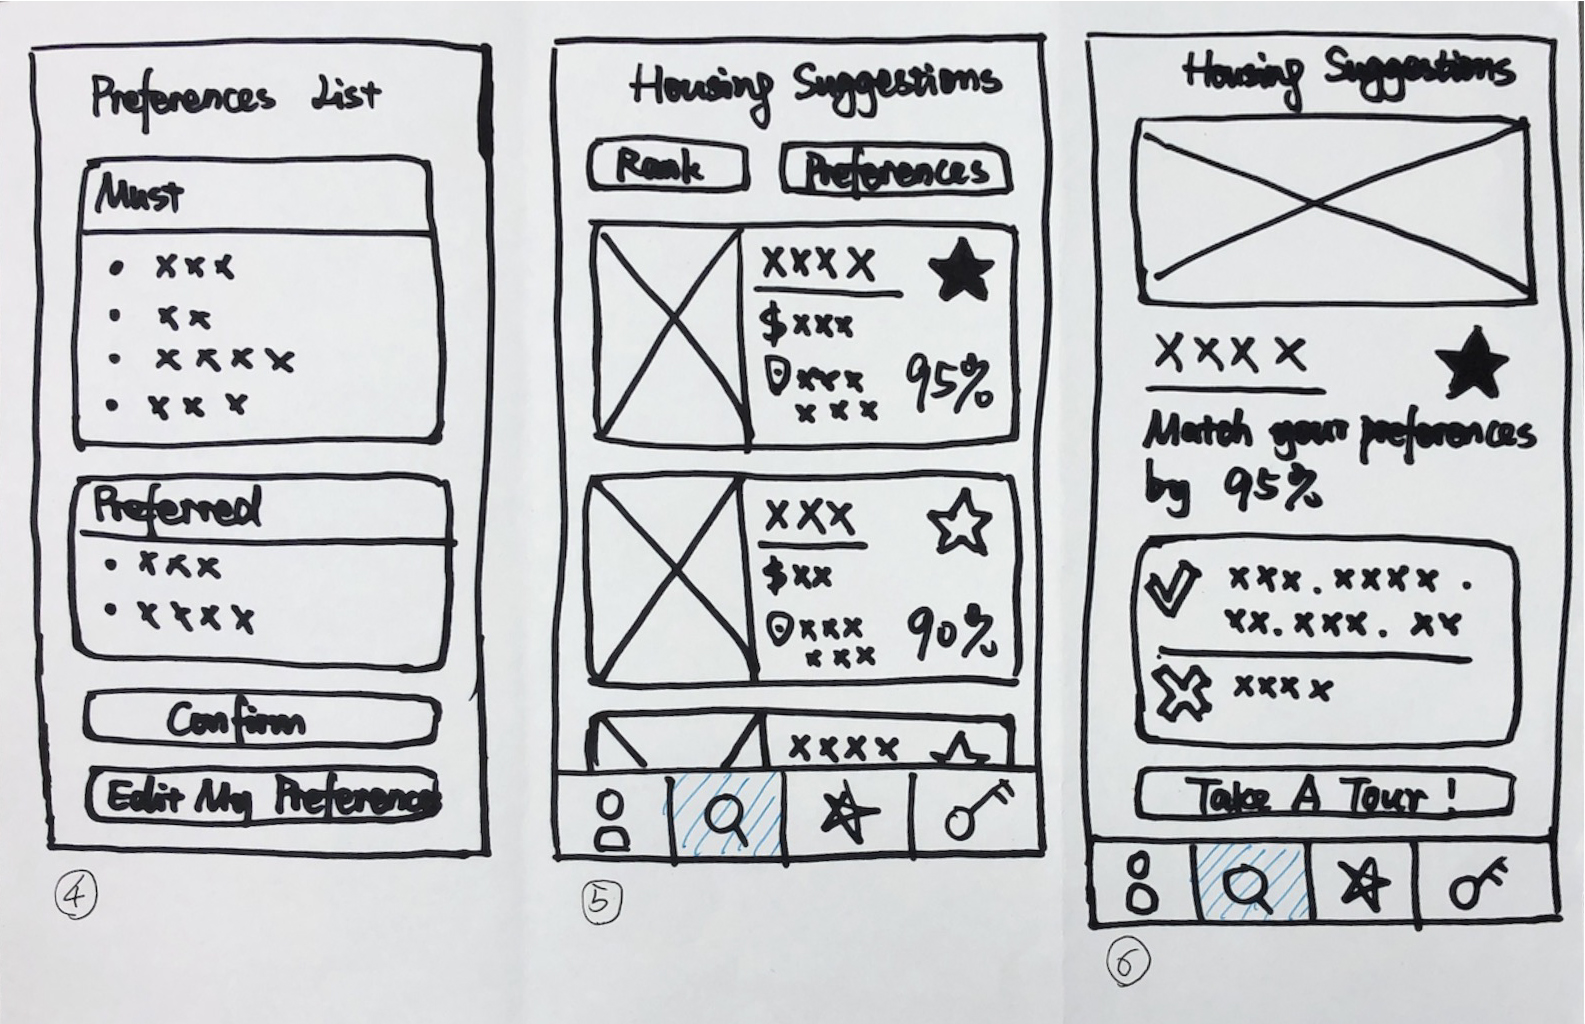 Preferences List
Must
• xxx
• xx
• xxxx
• xxx
Preferred
• xxx
• xxxx
Confirm
Edit My Preferences
4
Housing Suggestions
Rank
Preferences
XXXX
$xxx
xxx
xxx
95%
XXX
$xx
xxx
xxx
90%
xxxx
5
Housing Suggestions
XXXX
Match your preferences
by 95%
xxx. xxxx.
xx. xxx. xx
xxxx
Take A Tour!
6